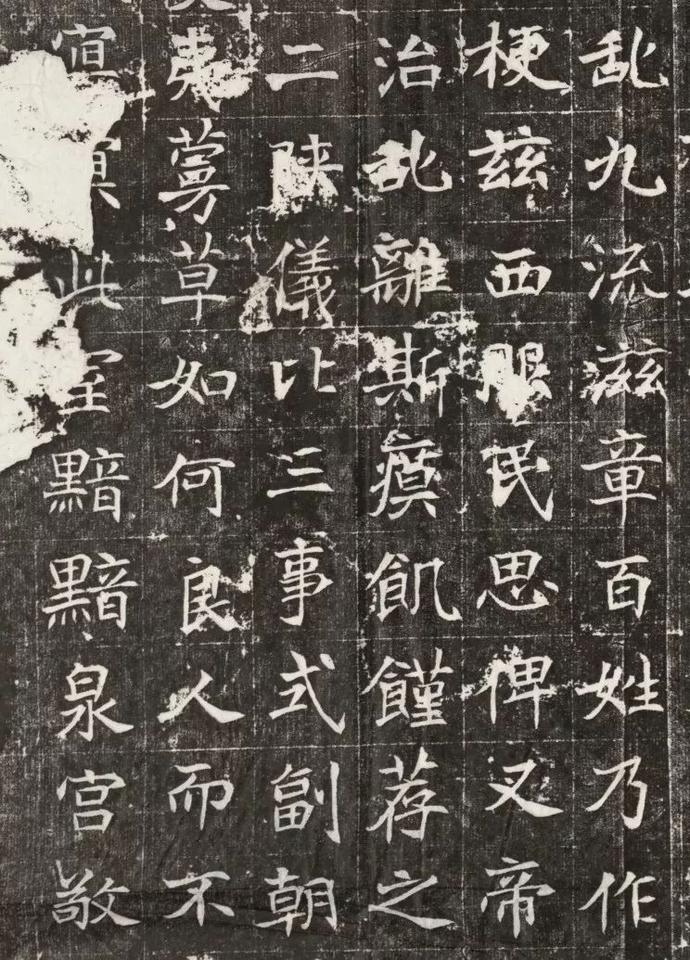 乱九流滋章百姓乃作
梗兹西服民思俾叉帝
治乱離斯瘼飢饉荐之
二陕儀比三事式副朝
夷蒡草如何良人而不
此室黯黯泉宫敬